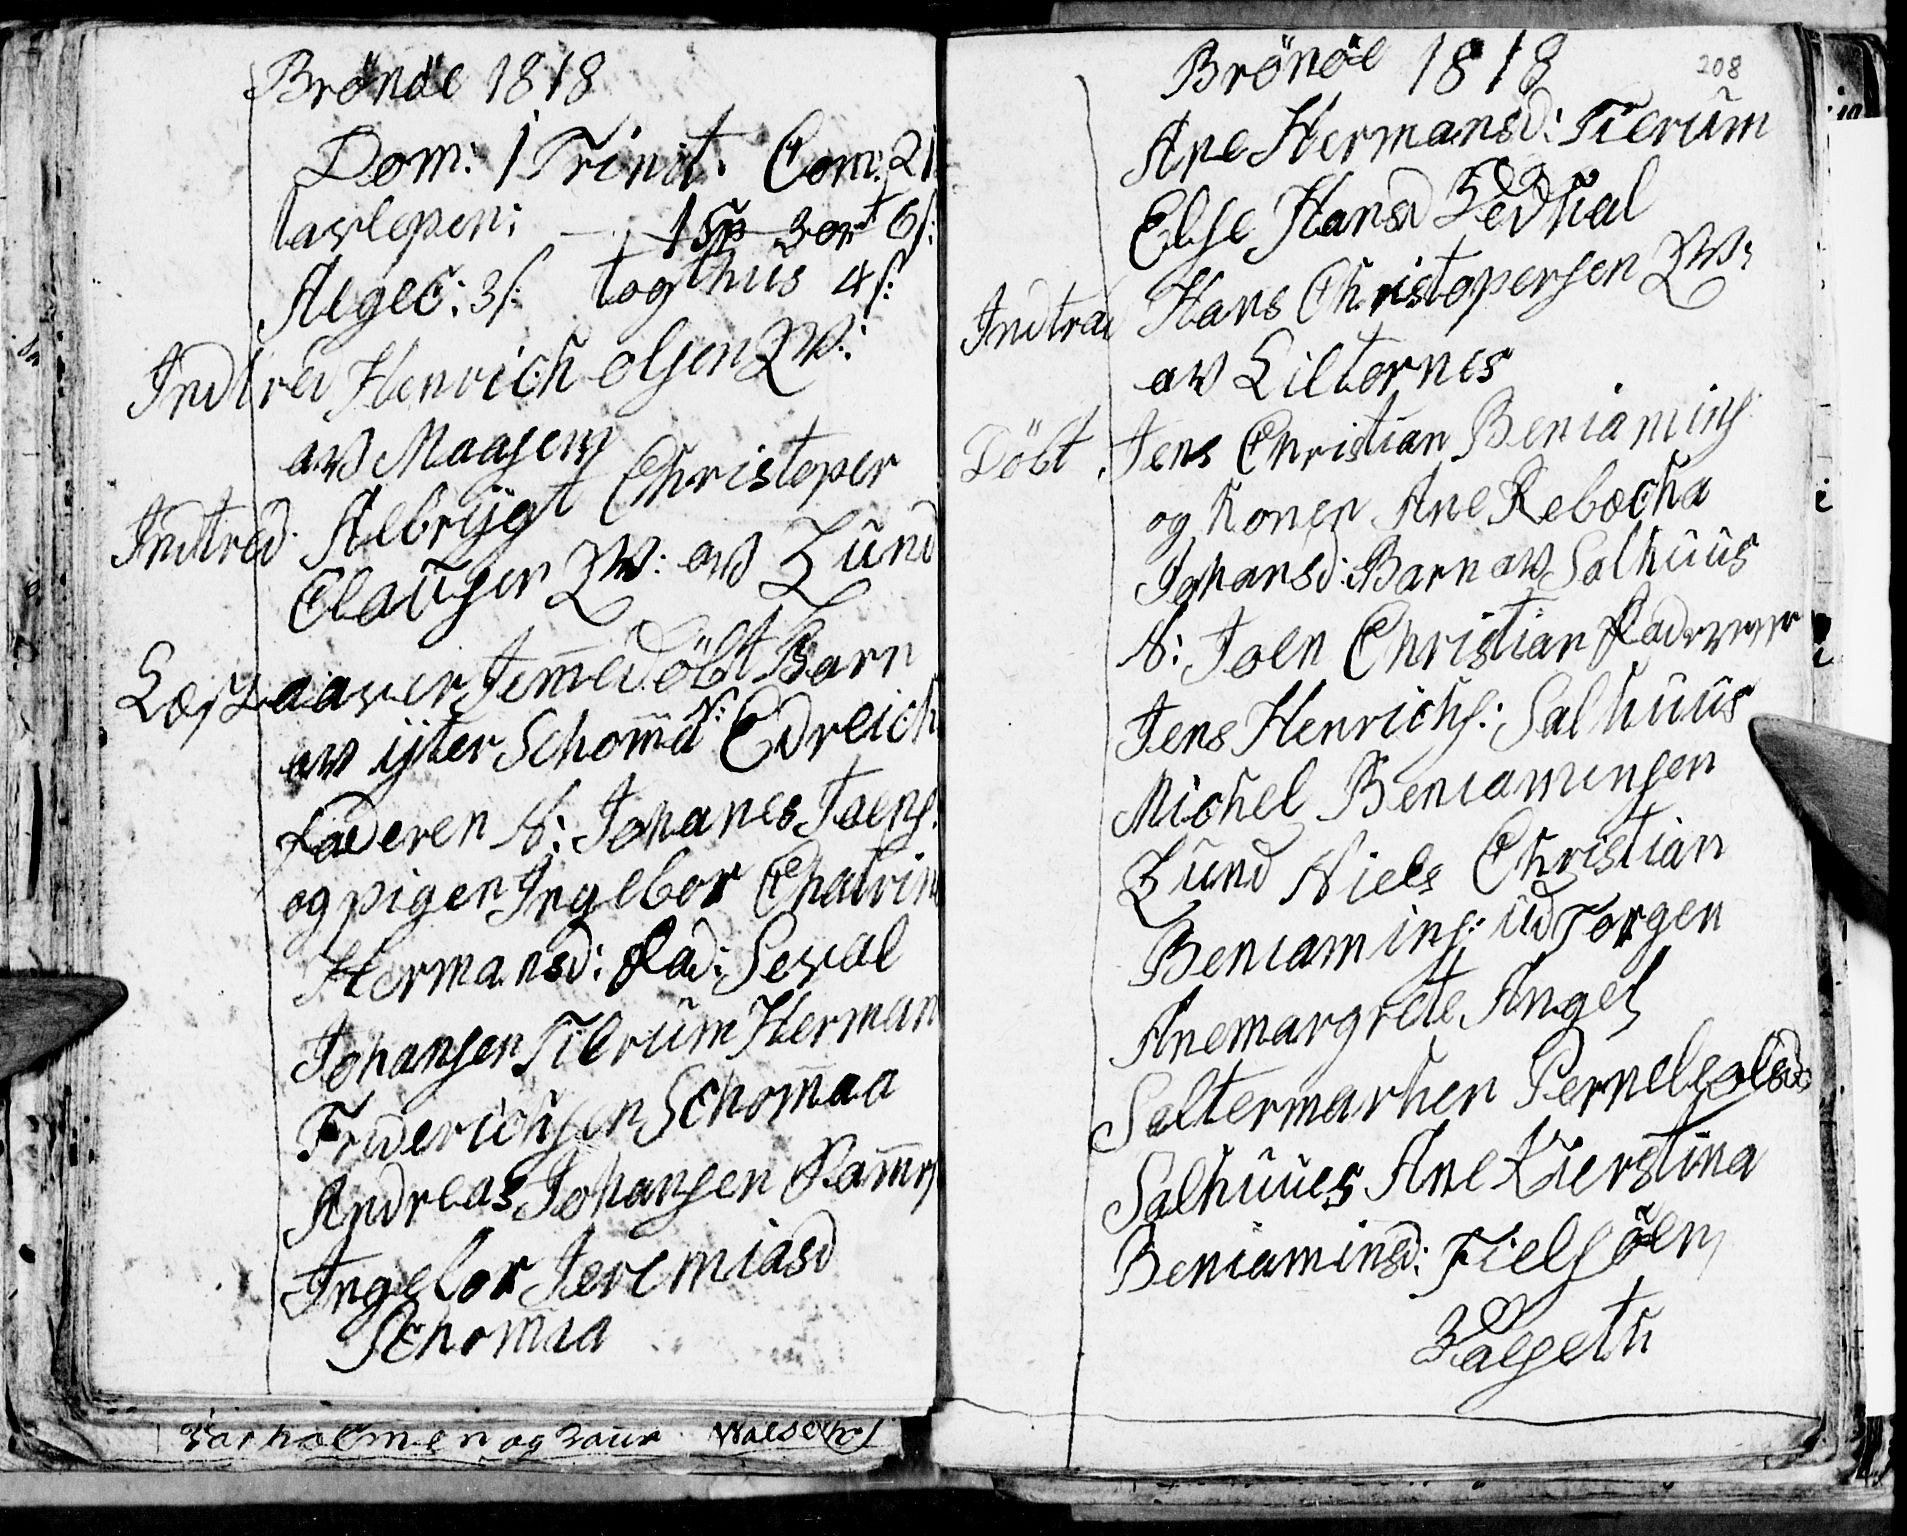 Brönöe 1818
Dom: 1 Trinit. Com: 21
tavlepen: 1 Sp 3 ort 6 s:
Aegec: 3 s: togthus 4 s:
Indtred Henrich olsen QW:
av Maasen
Indtred. Albrygt Christoper
Clausen QW: av Lund
Læst aaver Jemedöbt Barn
av ÿter Schoma N: Edreich
Faderen N: Johanes Joens:
og pigen Ingebor Chatrin
Hermansd: Fad: Seval
Johansen Tilrum Herman
Friderichsen Schomaa
Andreas Johansen Ramn
Ingebor Jeremiasd
Schomaa
Varholmen og
208
Brönöe 1818
Ane Hermansd: Tilrum
Else Hansd Vedhal
Indtræd Hans Christopersen QW:
av Liltornes
Döbt Jens Christian Beniamins:
og Konen Ane Rebecha
Johansd: Barn av Salhuus
N: Joen Christian Fadrener
Jens Henrichs: Salhuus
Michel Beniaminsen
Lund Niels Christian
Beniamins: ud Torgen
Anemargrete Angel
Saltermarken Pernele olsd:
Salhuues Ane Kierstina
Beniaminsd: Tielsöen